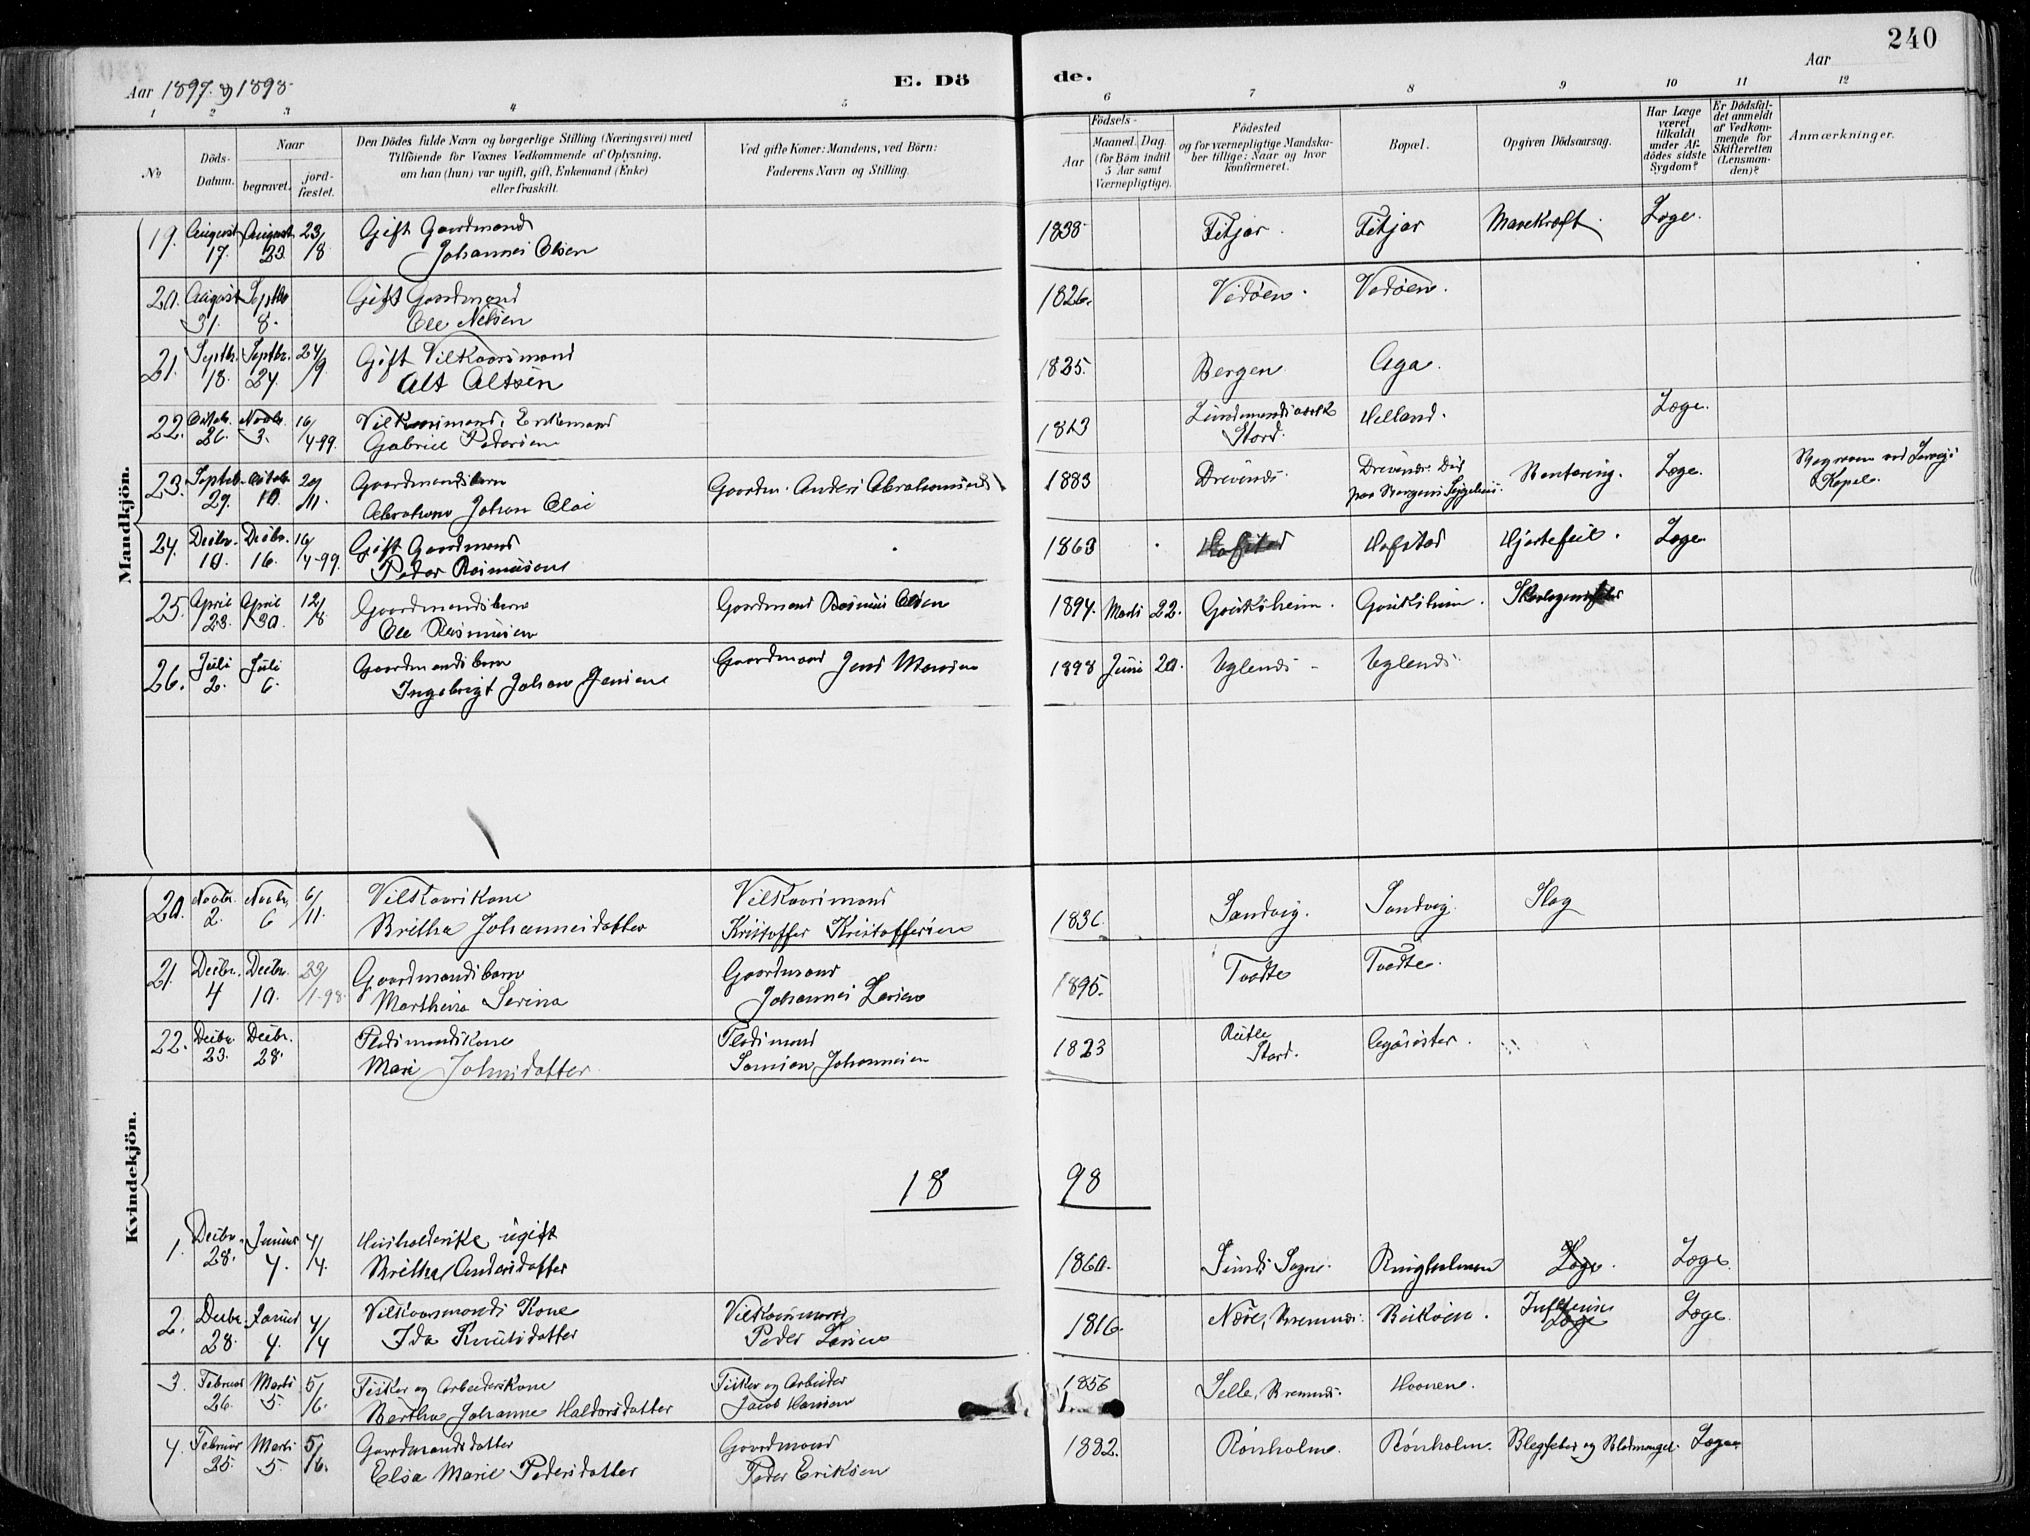 240
Aar 1897 og 1898.
E. Dö
de.
Aar
1 2 3 4 5 6 7 8 9 10 11 12
No
Döds-Datum.
Naar
begravet.
jord-fæstet.
Den Dödes fulde Navn og borgerlige Stilling (Næringsvei) med
Tilföiende for Voxnes Vedkommende af Oplysning,
om han (hun) var ugift, gift, Enkemand (Enke)
eller fraskilt.
Ved gifte Koner: Mandens, ved Börn:
Faderens Navn og Stilling.
Födsels-
Aar
Maaned. Dag.
(for Börn indtil
5 Aar samt
Værnepligtige).
Födested
og for værnepligtige Mandska-
ber tillige: Naar og hvor
konfirmeret.
Bopæl.
Opgiven Dödsaarsag.
Har Læge
været
tilkaldt
under Af-
dödes sidste
Sygdom?
Er Dödsfal-
det anmeldt
af Vedkom-
mende for
Skifteretten
(Lensman-
den)?
Anmærkninger.
Mandkjön.
19. August 17. August 23. 23/8 Gift Gaardmand Johannes Olsen 1838 Fitjar. Fitjar Mavekræft. Læge.
20. August 31. Septbr 8. Gift Gaardmand Ole Nelsen 1826. Vedöen. Vedöen.
21. Septbr. 18. Septbr. 24. 24/9 Gift Vilkaarsmand Alt Altsen 1825. Bergen Aga.
22. Octobr. 26. Novbr. 3. 16/4-99. Vilkaarsmand, Enkemand Gabriel Pedersen 1813 Stord. Helland. Læge.
23. Septbr. 29. Octobr. 10. 20/11. Gaardmandsbarn Abraham Johan Olai Gaardm. Anders Abrahamsens 1883 Drevenes. Drevenes. Död paa Bergens Sygehus. Læge. Kapel.
24. Decbr. 10. Decbr. 16. 16/4-99. Gift Gaardmand Peder Rasmussen 1863 Hafstad Hafstad Hjertefeil. Læge
25. April 23. April 30. 12/8 Gaardmandsbarn Ole Rasmussen Gaardmand Rasmus Olsen 1894. Marts 22. Gauksheim. Gauksheim.
26. Juli 2. Juli 6. Gaardmandsbarn Ingebrigt Johan Jensen Gaardmand Jens Monsen 1898 Juni 20. Yglands Yglands
Kvindekjön.
20. Novbr. 2. Novbr. 6 6/11. Vilkaarskone Britha Johannesdatter Vilkaarsmand Kristoffer Kristoffersen 1836. Sandvig. Sandvig. Slag
21. Decbr. 4 Decbr. 10. 23/1-98. Gaardmandsbarn Marthina Serina Gaardmand Johannes Larsen 1895. Tvedte Tvedte.
22. Decbr. 23. Decbr. 28. Pladsmandskone Mari Johnsdatter Pladsmand Samson Johannesen 1823 Rutle Stord. Agasöster.
18 98
1. Decbr. 28. Januar 4. 4/4. Husholderske ugift Britha Andersdatter 1860. Sunds Sogn. Ringholmen Læge. Læge.
2. Decbr. 28. Januar 4. 4/4 Vilkaarsmands Kone Ida Knutsdatter Vilkaarsmand Peder Larsen 1816. Bremnes. Læge Læge.
3. Februar 26. Marts 5. 5/6. Fisker og Arbeiderskone Bertha Johanne Haldorsdatter Fisker og Arbeider Jacob Hansen 1856 Selle, Bremnes.
4. Februar 25. Marts 5. 5/6. Gaardmandsdatter Elsa Marie Pedersdatter Gaardmand Peder Eriksen 1882. Rönholm. Rönholm. Blegsot og Blodmangel. Læge.